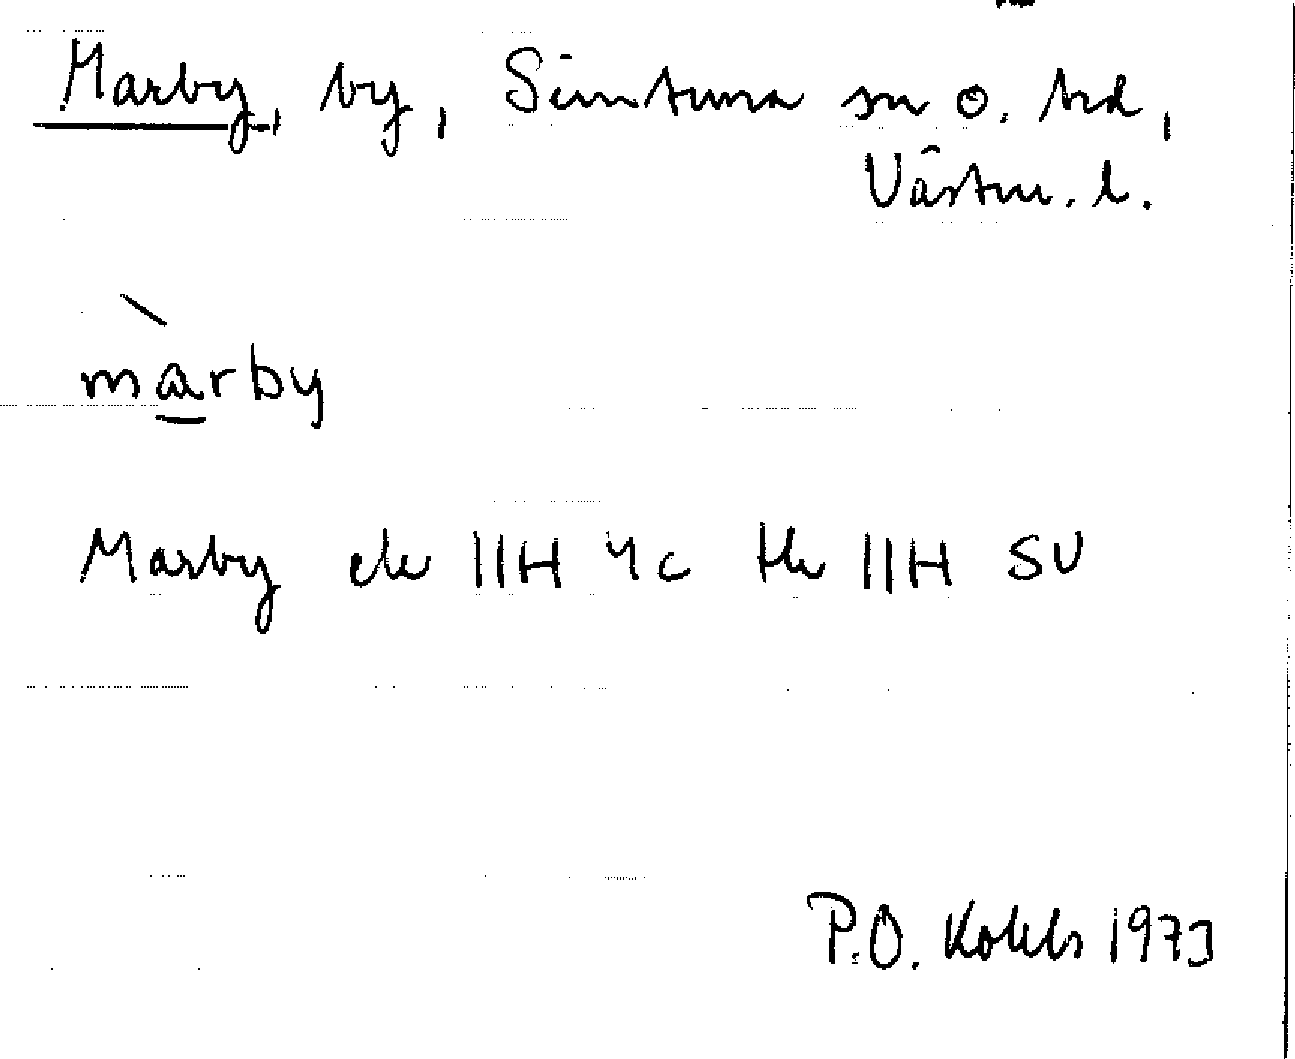 Marby, by, Simtuna sn o. hd,
Västm. l.
màrby
Marby ek 11H 4c tk 11H SV
P.O. 1973